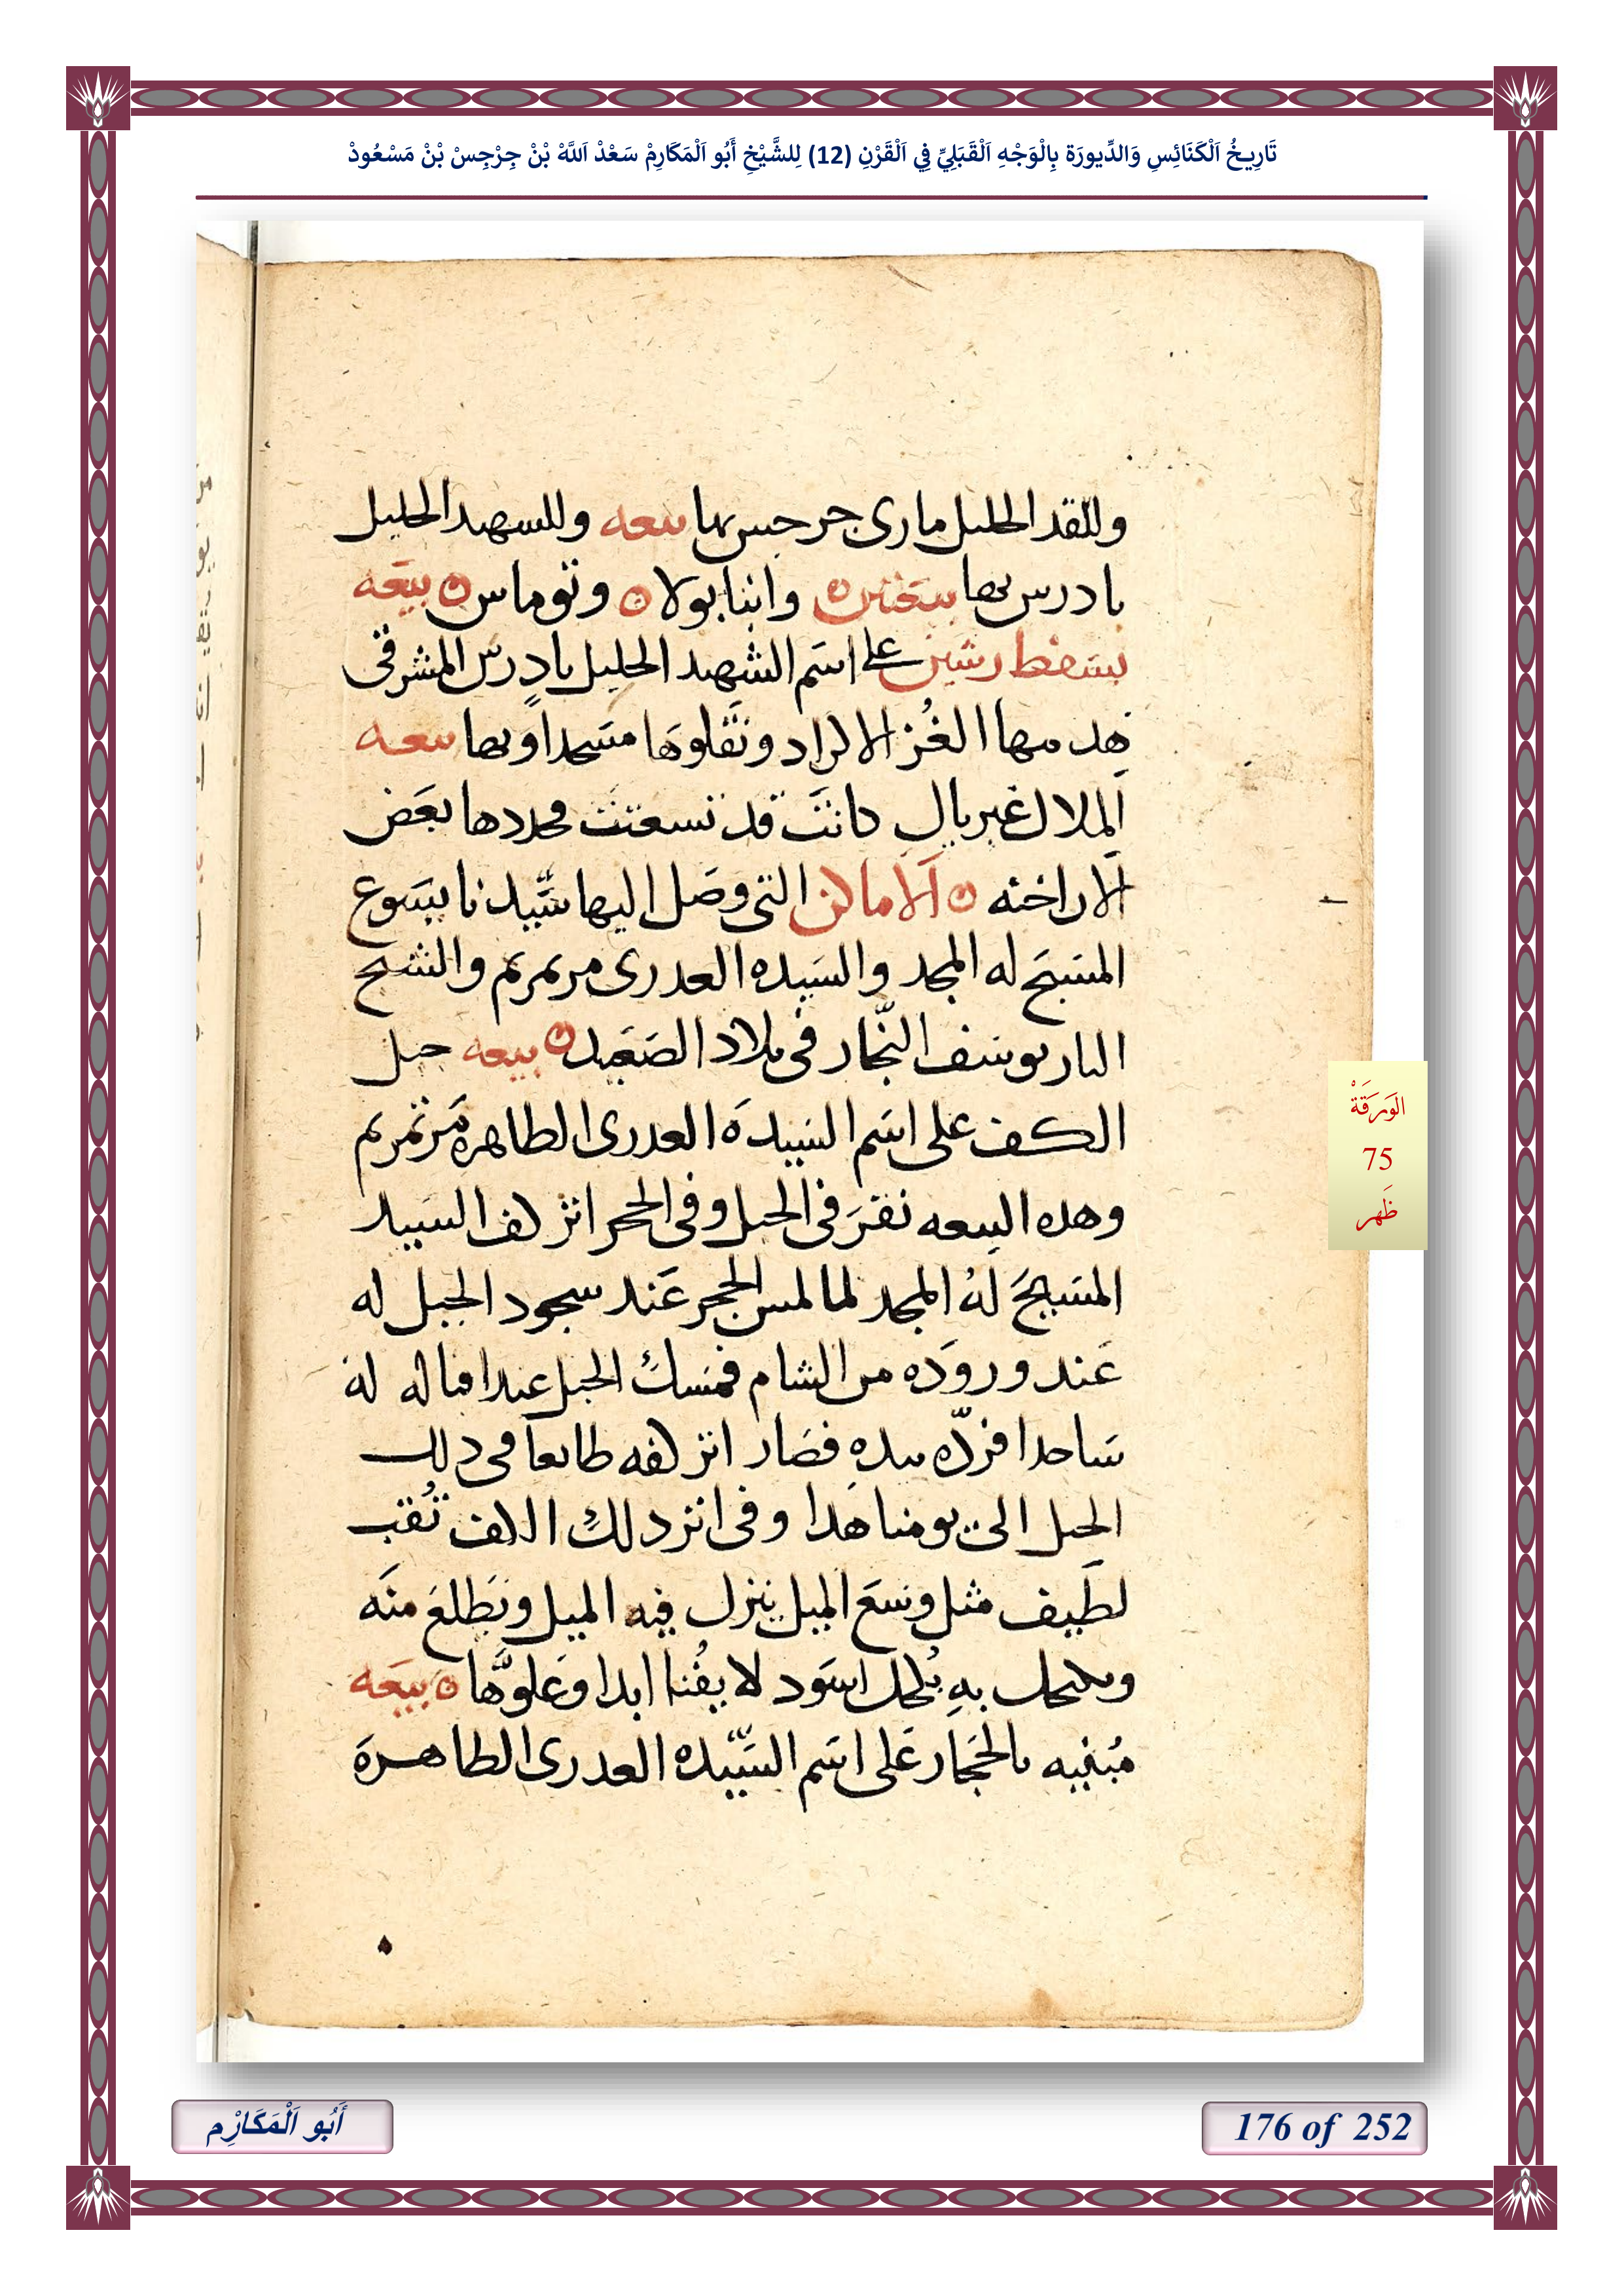 تَارِيخُ اَلْكَنَائِسِ وَالدِّيورَة بِالْوَجْهِ اَلْقَبَلِيِّ فِي اَلْقَرْنِ (12) لِلشَّيْخِ أَبُو اَلْمَكَارِمْ سَعْدْ اَللَّهْ بْنْ جِرْجِسْ بْنْ مَسْعُودْ
وللقد الجليل مارى جرجس بها بيعه وللشهيد الجليل
تادرس بها بيعتين وانبا بولا وتوماس بيعه
بسفط رشين على اسم الشهيد الجليل تادرس المشرقى
هدمها الغُز الاكراد ونقلوها مسجدا وبها بيعه
الملاك غبريال كانت قد تسعتت فجددها بعض
الاراخنه الاماكن التى وصل اليها سيدنا يسوع
المسيح له المجد والسيده العدرى مرتمريم والشيخ
البار يوسف النجار فى بلاد الصعيد بيعه جبل
الكف على اسم السيدة العدرى الطاهره مرتمريم
وهده البيعه نقر فى الجبل وفى الحجر اثر كف السيد
المسيح له المجد لما لمس الحجر عند سجود الجبل له
عند وروده من الشام فمسك الجبل عند اقباله له
ساجدا فردّه بيده فصار اثر كفه طابعا فى دلك
الجبل الى يومنا هدا وفى اثر دلك الكف تُقب
لطيف مثل وسع الميل ينزل فيه الميل ويطلع منه
ويكتحل به بُكحل اسود لا يفُنا ابدا وعلوّها بيعه
مُبنيه بالحجار على اسم السيّده العدرى الطاهرة
الوَرَقَةْ
75
ظَهر
أَبُو اَلْمَكَارْم
176 of 252